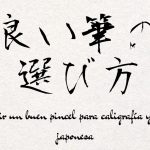 良い筆の
選び方
ir un buen pincel para caligrafía y
japonesa